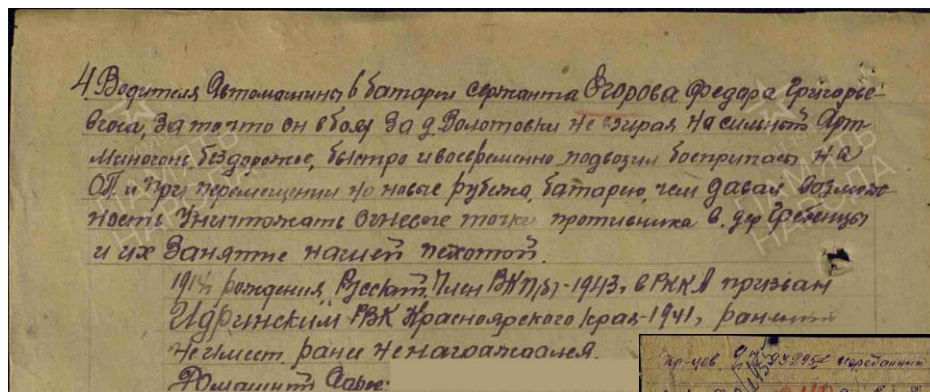 4. Водителя Автомашины в батареи сержанта Егорова Федора Григорье-
вича, За то что он в боях За д. Волотовки не взирая на сильный Арт
Миногонь, бездорожье, быстро и восвременно подвозил боеприпасы на
ОП и при перемещении на новые рубежа, батарею, чем давал возмож-
ность Уничтожать огневые точки противника в. дер
и их Занятие нашей пехотой.
1914г рождения, Русский. Член ВКП/б/-1943г в РККА призван
Идринским РВК Красноярского края-1941г, ранений
не имеет, ранее не награждался.
Домашний Адрес: